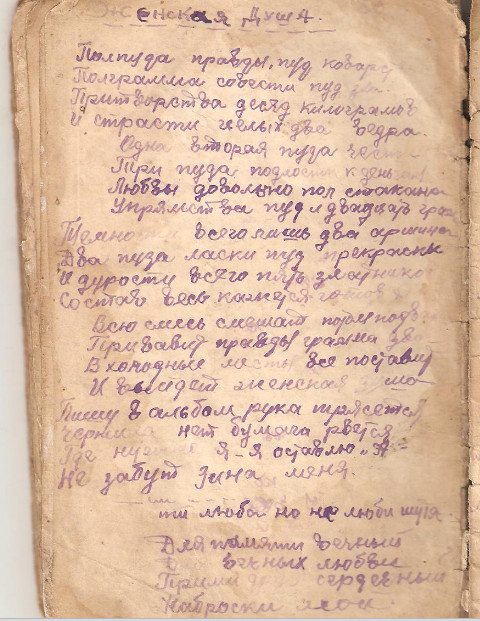 Женская Душа.
Полпуда правды, пуд ковар
Полграмма совести пуд
Притворства десяд килограмов
И страсти целых два ведра.
Одна вторая пуза
Три пуда подлости к деньгам
Любвы довольно пол стакана
Упрямства пуд и двадцать грам
всего лишь два аршина
Два пуза ласки пуз прекрасны
И дурости всего пять
Состав весь кажется готов
Всю смесь смешат потом
Прибавит правды грамма два
В холодные месты все поставит
И выйдет женская
Пишу в альбом, рука трясется
нет бумага рвется
Где я-я оставлю „А"
Не забут Зина меня.
ти люба но не люби шутя
Для памяти вечный
вечных любви
Прими сердечный
Наброски